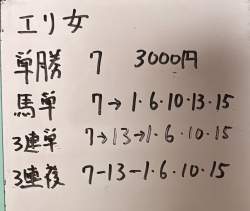 エリ女
単勝 7 3000円
馬単 7→1・6・10・13・15
3連単 7→13→1・6・10・15
3連複 7-13-1・6・10・15